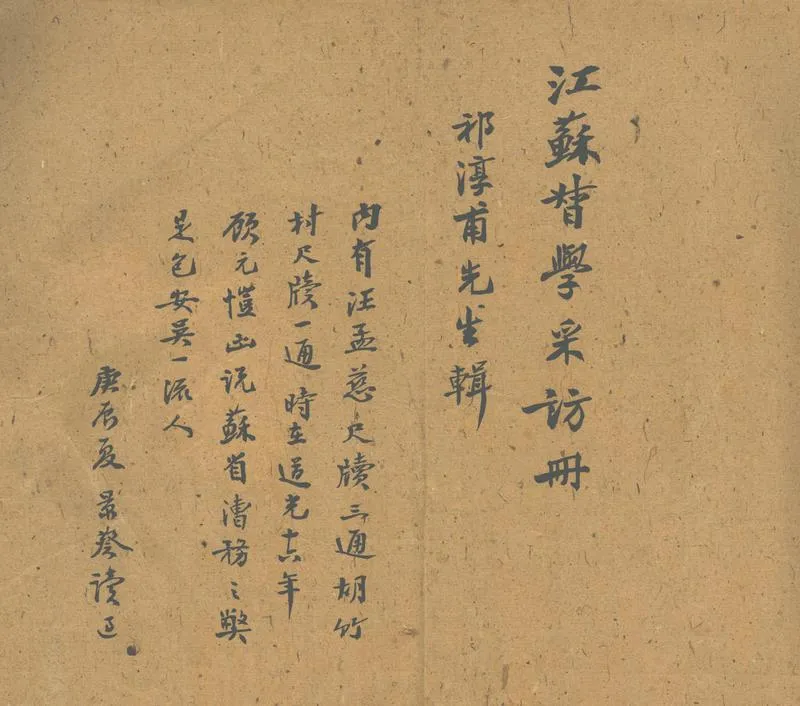 江蘇督學采訪冊
祁淳甫先生輯
内有汪孟慈尺牘三通胡竹
村尺牘一通時在道光十六年
顧元愷函說蘇省漕務之獘
是包安吳一流人
庚辰夏景葵讀過